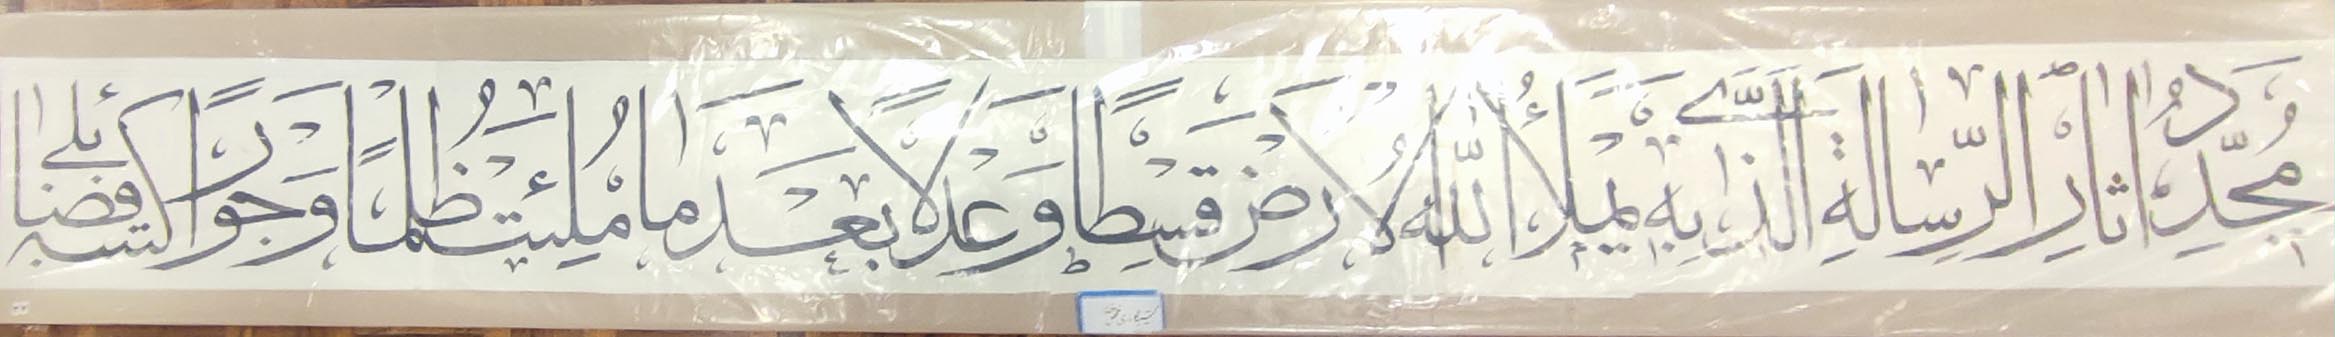 مُجَدِّدُ اٰثارِ الرِّسالَةِ الَّذی بِهِ یَمْلَأُ اللّٰهُ الْاَرْضَ قِسْطًا وَ عَدْلًا بَعْدَ ما مُلِئَتْ ظُلْمًا وَ جَوْرًا کتبه قضائلی